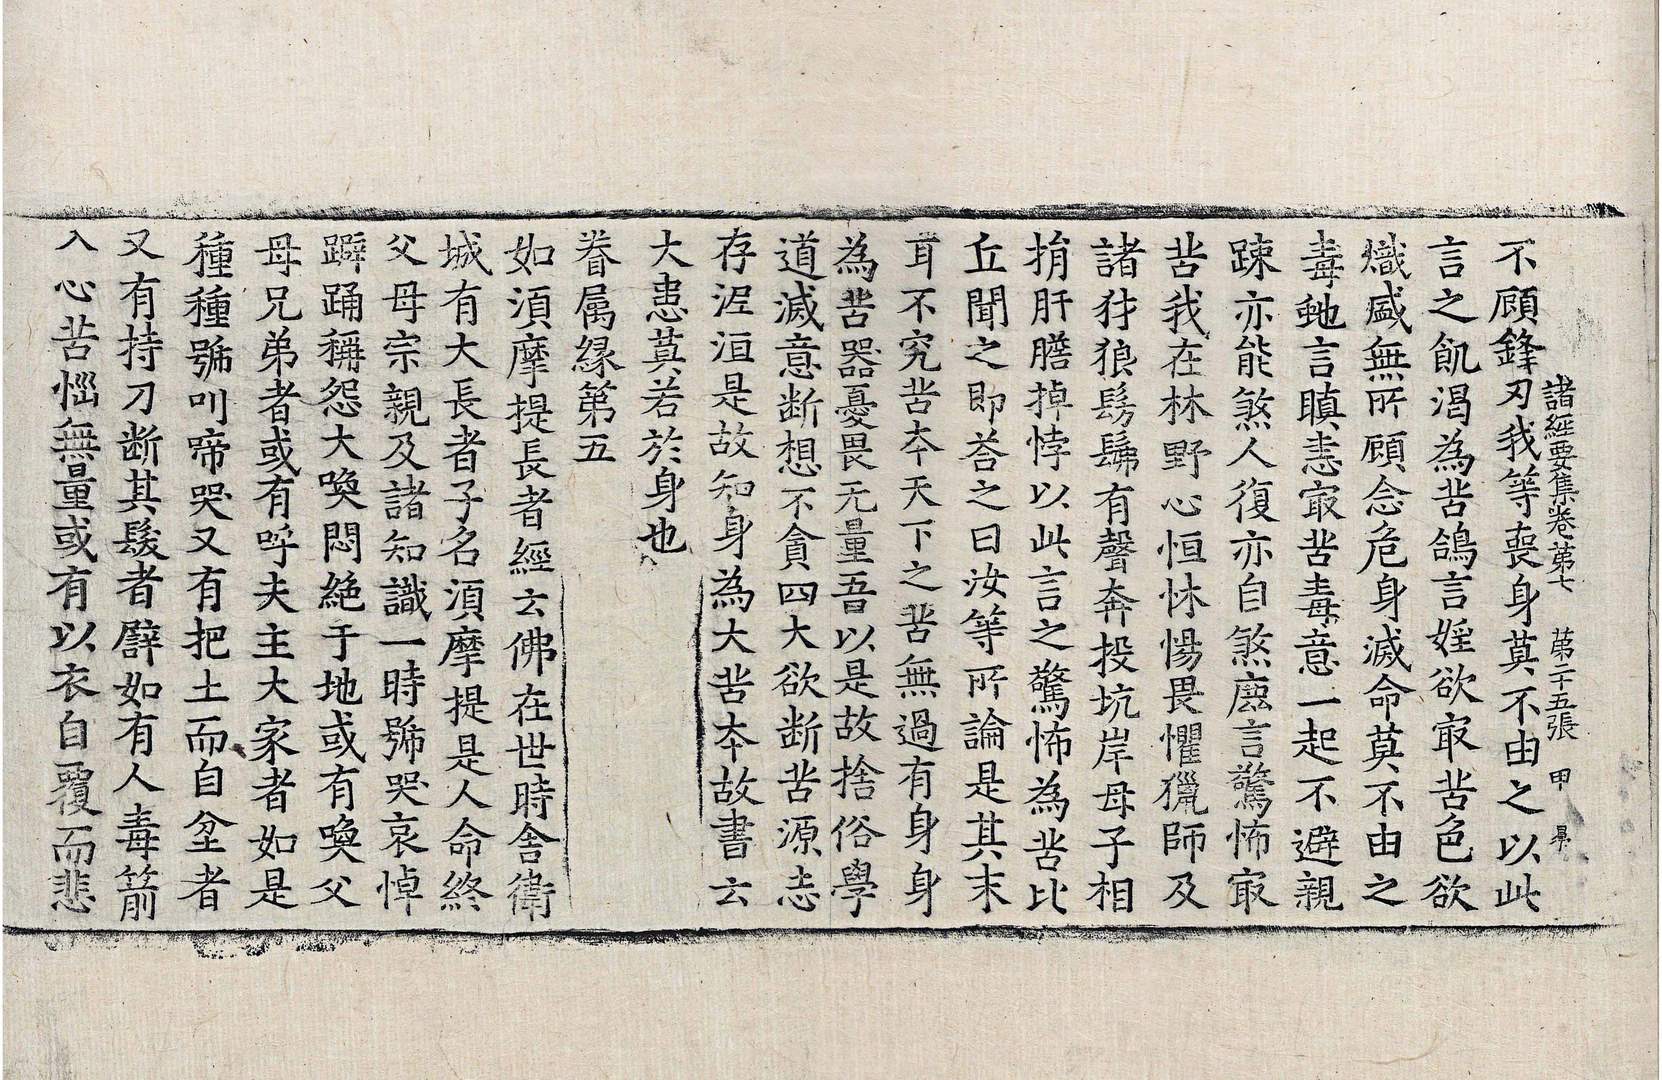 諸經要集卷第七 第二十五張 甲
不顧鋒刃我等喪身莫不由之以此
言之飢渴為苦鴿言婬欲㝡苦色欲
熾盛無所顧念危身滅命莫不由之
毒虵言瞋恚㝡苦毒意一起不避親
踈亦能煞人復亦自煞麈言驚怖㝡
苦我在林野心恒怵惕畏懼獵師及
諸犲狼髣髴有聲奔投坑岸母子相
捐肝膽掉悸以此言之驚怖為苦比
丘聞之即荅之曰汝等所論是其末
耳不究苦夲天下之苦無過有身身
為苦器憂畏无量吾以是故捨俗學
道滅意断想不貪四大欲断苦源志
存泥洹是故知身為大苦夲故書云
大患莫若於身也
眷属緣第五
如湏摩提長者經云佛在世時舍衛
城有大長者子名湏摩提是人命終
父母宗親及諸知識一時號哭哀悼
躃踊稱怨大喚悶絶于地或有喚父
母兄弟者或有呼夫主大家者如是
種種號叫啼哭又有把土而自坌者
又有持刀断其髮者譬如有人毒箭
入心苦惱無量或有以衣自覆而悲